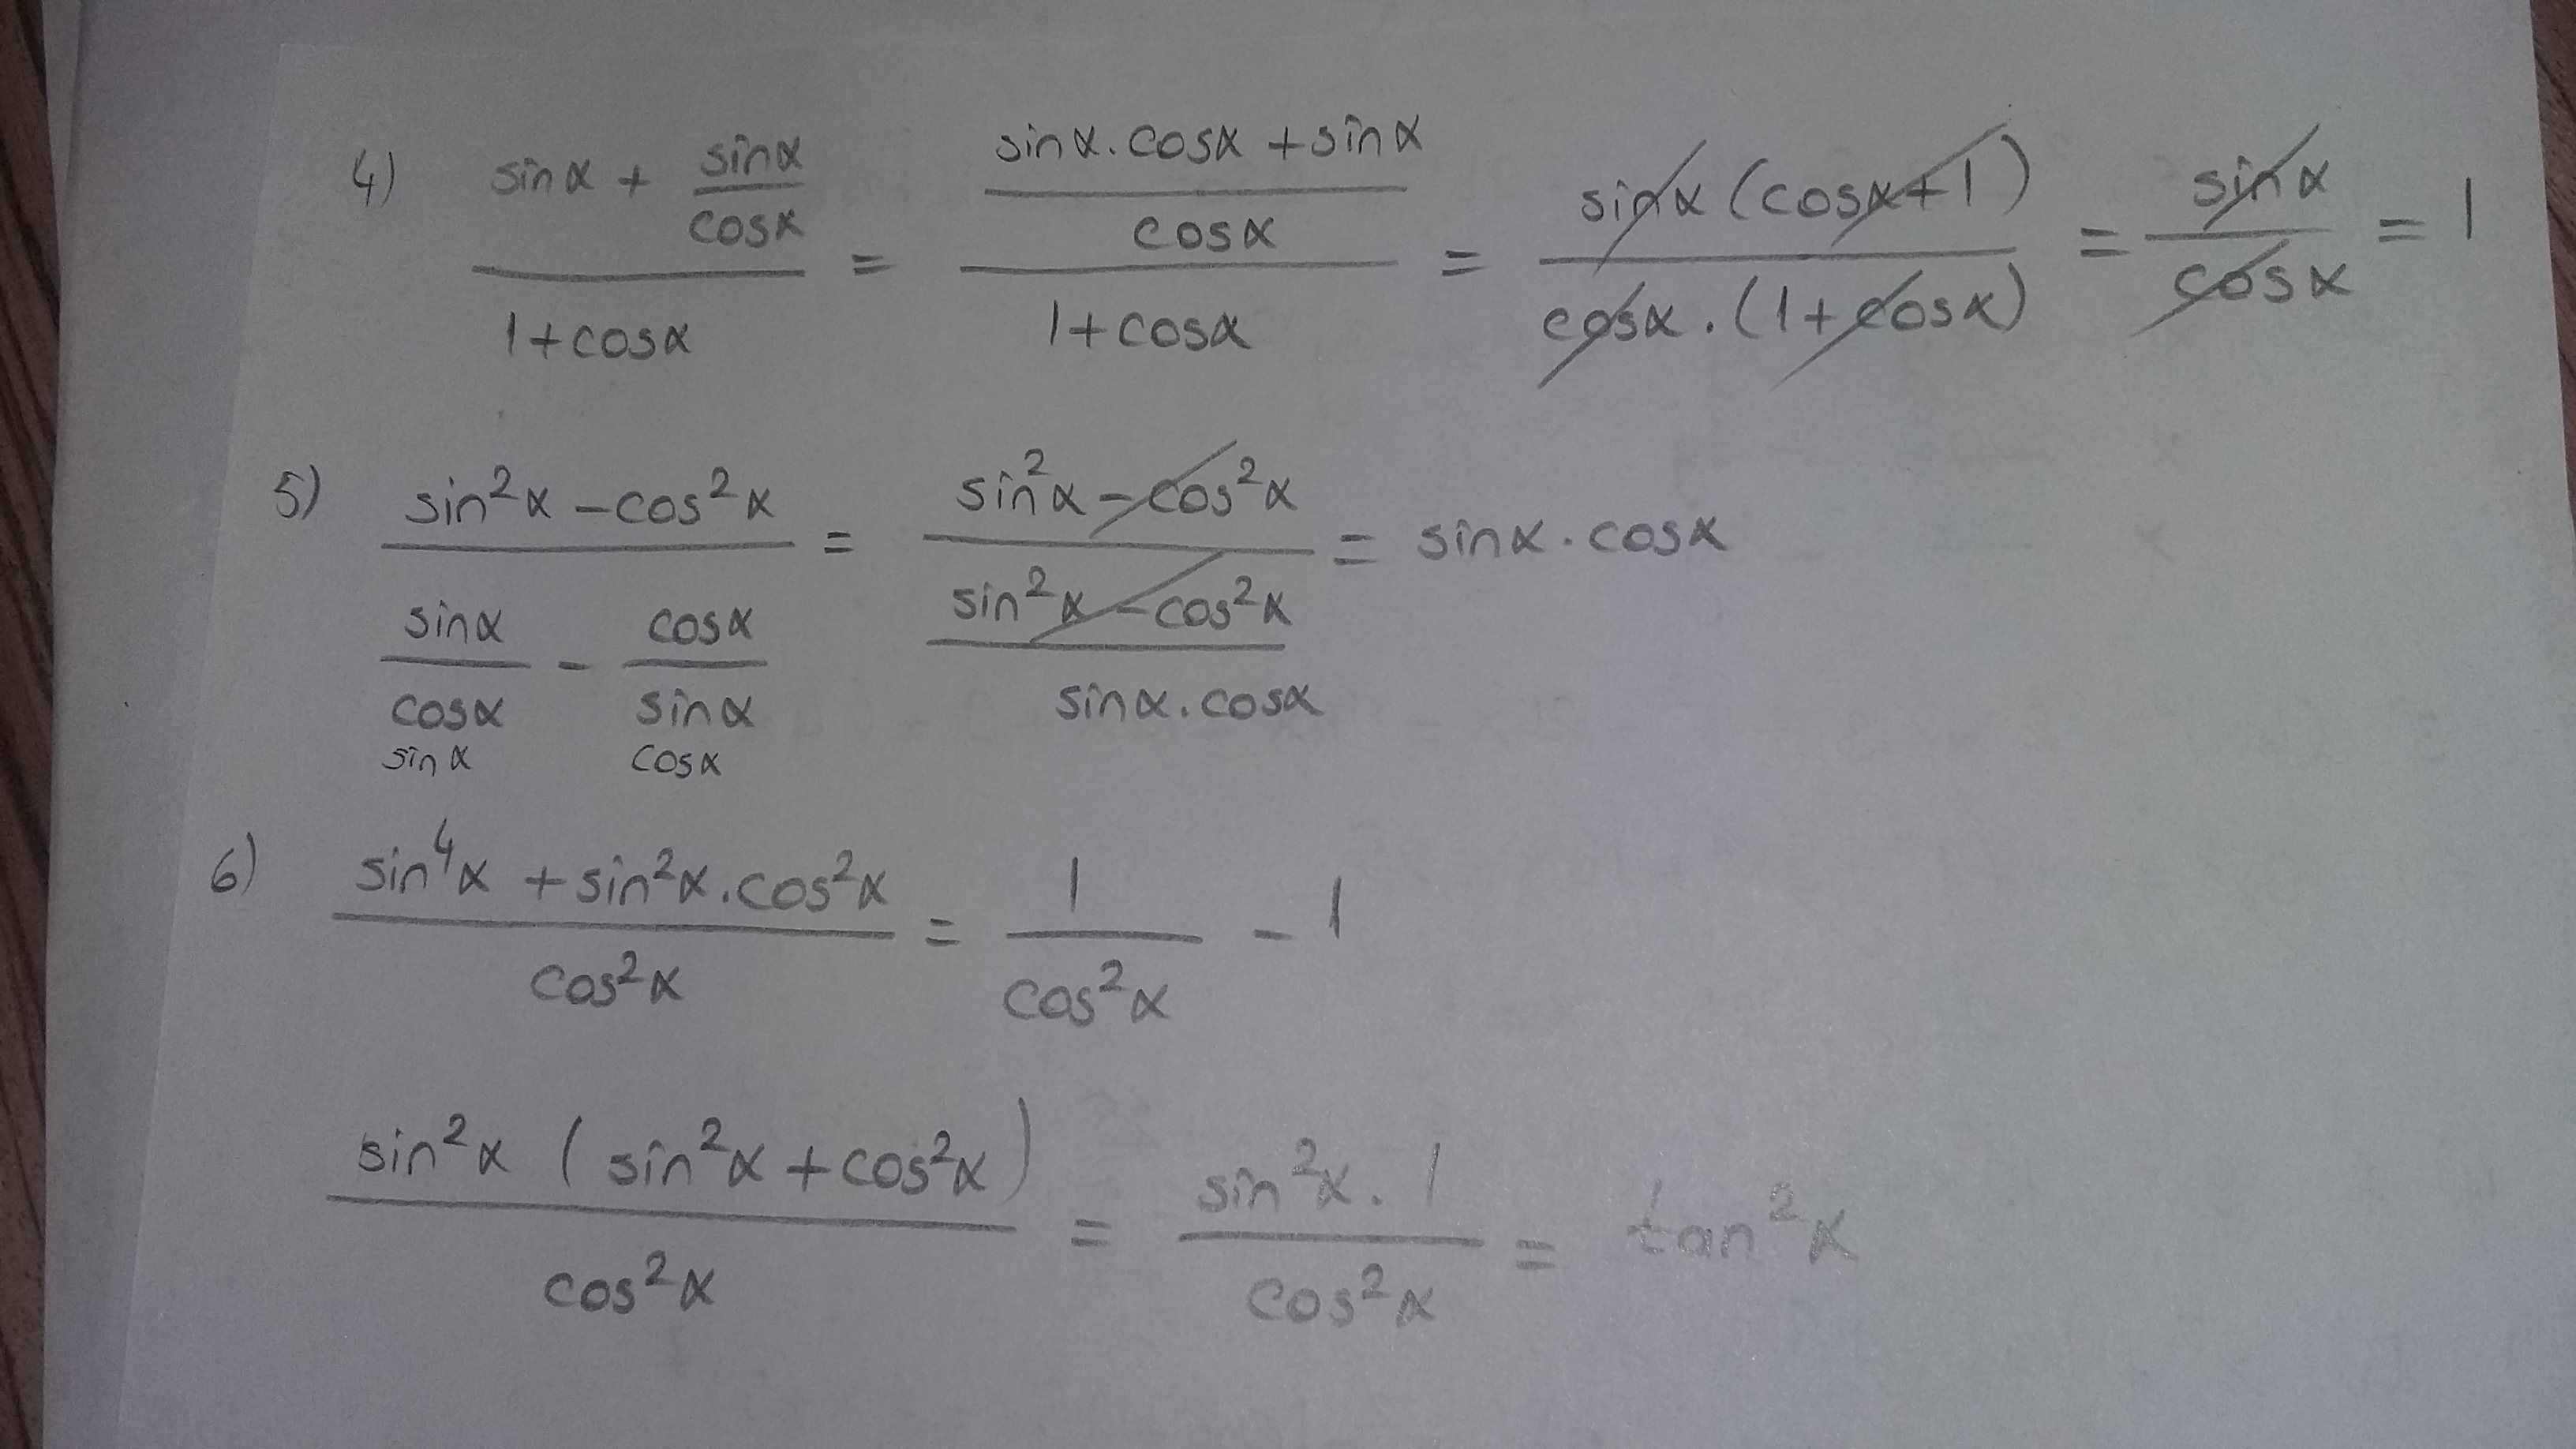 4) (sinα + sinα/cosα)/(1+cosα) = ((sinα.cosα + sinα)/cosα)/(1+cosα) = sinα(cosα+1)/(cosα.(1+cosα)) = sinα/cosα = 1
5) (sin²α - cos²α)/(sinα/cosα - cosα/sinα) = (sin²α - cos²α)/((sin²α - cos²α)/(sinα.cosα)) = sinα.cosα
sinα cosα
6) (sin⁴α + sin²α.cos²α)/cos²α = 1/cos²α - 1
sin²α (sin²α + cos²α)/cos²α = sin²α.1/cos²α = tan²α